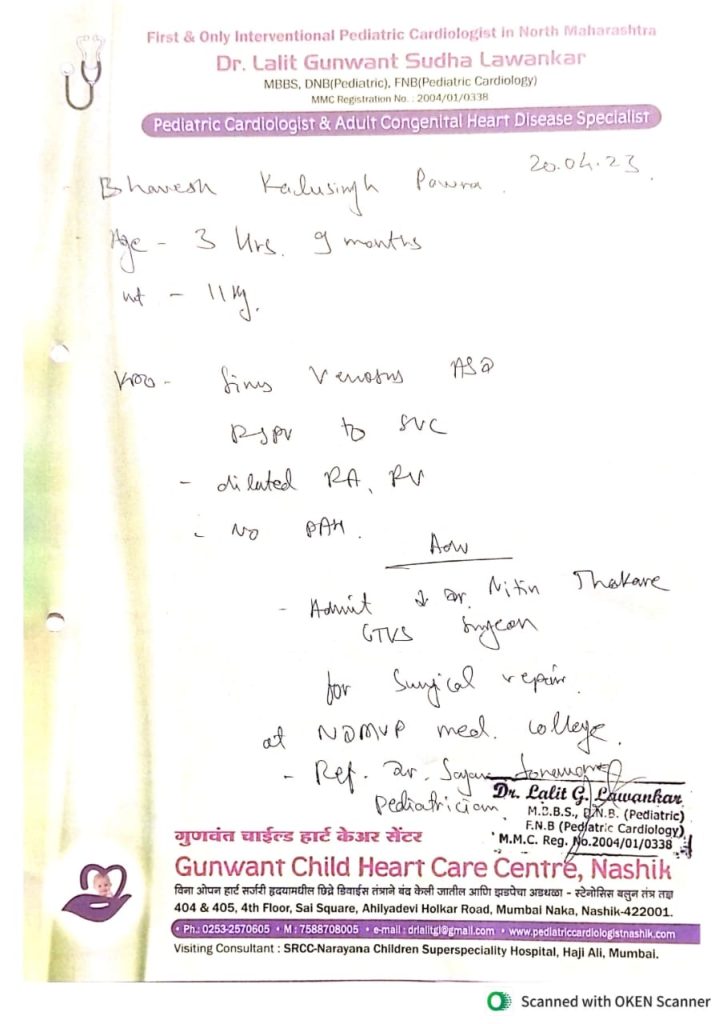 First & Only Interventional Pediatric Cardiologist in North Maharashtra
Dr. Lalit Gunwant Sudha Lawankar
MBBS, DNB(Pediatric), FNB(Pediatric Cardiology)
MMC Registration No. : 2004/01/0338
Pediatric Cardiologist & Adult Congenital Heart Disease Specialist
20.04.23.
Bhavesh Kalusingh Pawra.
Age - 3 Yrs. 9 months
wt - 11 kg.
Sinus Venosus ASD
RSPV to SVC
- dilated RA, RV
- No PAH.
Adv
- Admit Dr. Nitin Thakare
CTVS Surgeon
for Surgical repair.
at NDMVP med. college.
- Ref. Dr. Sagar
Pediatrician
Dr. Lalit G. Lawankar
M.B.B.S., D.N.B. (Pediatric)
F.N.B (Pediatric Cardiology)
M.M.C. Reg. No.2004/01/0338
गुणवंत चाईल्ड हार्ट केअर सेंटर
Gunwant Child Heart Care Centre, Nashik
विना ओपन हार्ट सर्जरी हृदयामधील छिद्रे डिवाईस तंत्राने बंद केली जातील आणि झडपेचा अडथळा - स्टेनोसिस बलुन तंत्र तज्ञ
404 & 405, 4th Floor, Sai Square, Ahilyadevi Holkar Road, Mumbai Naka, Nashik-422001.
• Ph.: 0253-2570605 • M : 7588708005 • e-mail : drlalitgl@gmail.com • www.pediatriccardiologistnashik.com
Visiting Consultant : SRCC-Narayana Children Superspeciality Hospital, Haji Ali, Mumbai.
Scanned with OKEN Scanner